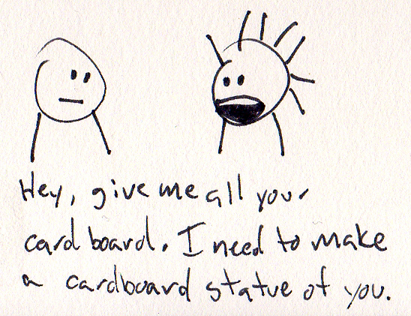 Hey, give me all your
cardboard. I need to make
a cardboard statue of you.